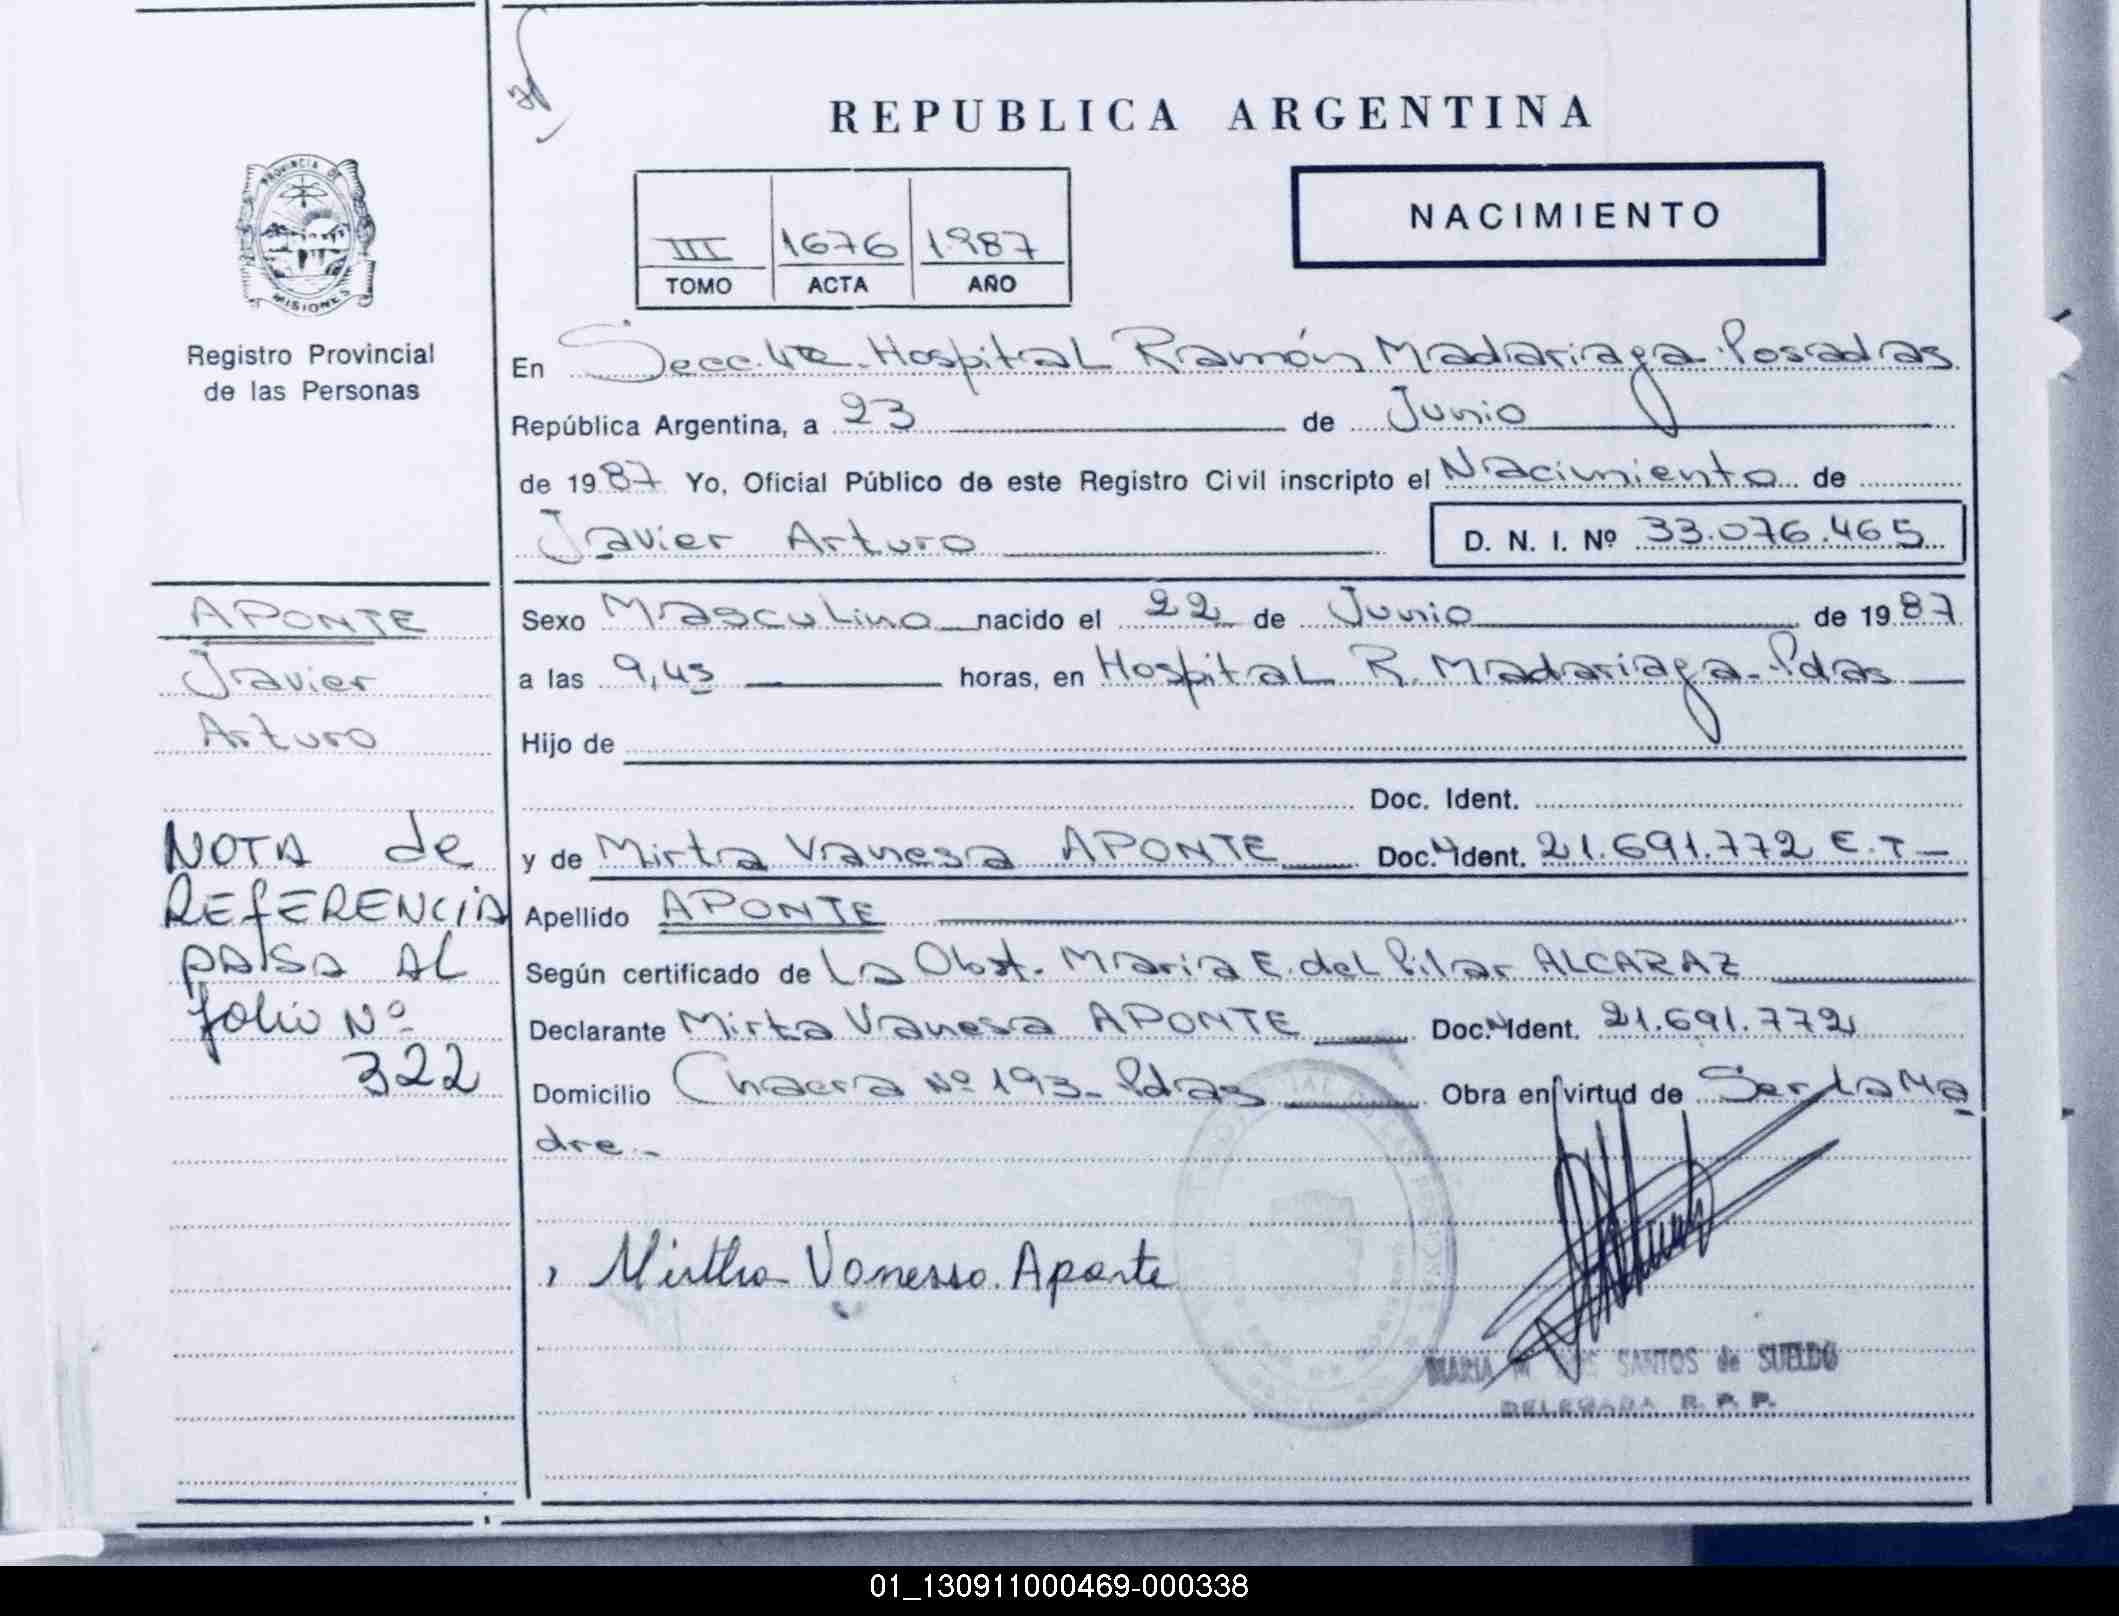 REPUBLICA ARGENTINA
PROVINCIA DE
MISIONES
Registro Provincial
de las Personas
III 1676 1987
TOMO ACTA AÑO
NACIMIENTO
En Secc. 4ta. Hospital Ramón Madariaga Posadas
República Argentina, a 23 de Junio
de 1987 Yo, Oficial Público de este Registro Civil inscripto el Nacimiento de
Javier Arturo D. N. I. Nº 33.076.465
APONTE
Javier
Arturo
NOTA de
REFERENCIA
PASA AL
folio Nº
322
Sexo Masculino nacido el 22 de Junio de 1987
a las 9,45 horas, en Hospital R. Madariaga-Pdas
Hijo de
Doc. Ident.
y de Mirta Vanesa APONTE Doc. Ident. 21.691.772 E.T-
Apellido APONTE
Según certificado de La Obst. Maria E. del Pilar ALCARAZ
Declarante Mirta Vanesa APONTE Doc. Ident. 21.691.772
Domicilio Chacra Nº 193- Pdas Obra en virtud de Ser La Ma
dre.-
Mirtha Vanessa Aponte
MARIA SANTOS de SUELDO
DELEGADA R. P. P.
01_130911000469-000338